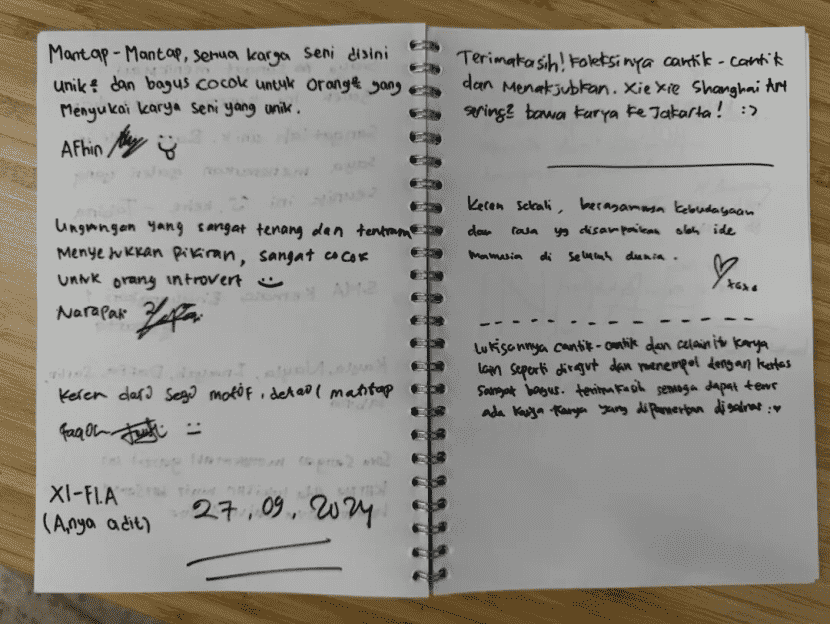 Mantap-Mantap, semua karya seni disini
unik² dan bagus cocok untuk orang² yang
Menyukai karya seni yang unik.
Afhin
Lingungan yang sangat tenang dan tentram
Menyejukkan pikiran, sangat cocok
untuk orang introvert
Narapati
Keren dari segi motif, detail mantap
XI-F1.A
(A,nya adit)
27.09.2024
Terimakasih! Koleksinya cantik-cantik
dan Menakjubkan. Xie Xie Shanghai Art
sering² bawa Karya Ke Jakarta! :>
Keren sekali, beragamnya kebudayaan
dan rasa yg disampaikan oleh ide
manusia di seluruh dunia.
xoxo
Lukisannya cantik-cantik dan selain itu karya
lain seperti dirajut dan menempel dengan kertas
sangat bagus. terimakasih semoga dapat terus
ada karya karya yang dipamerkan digalnas :♥